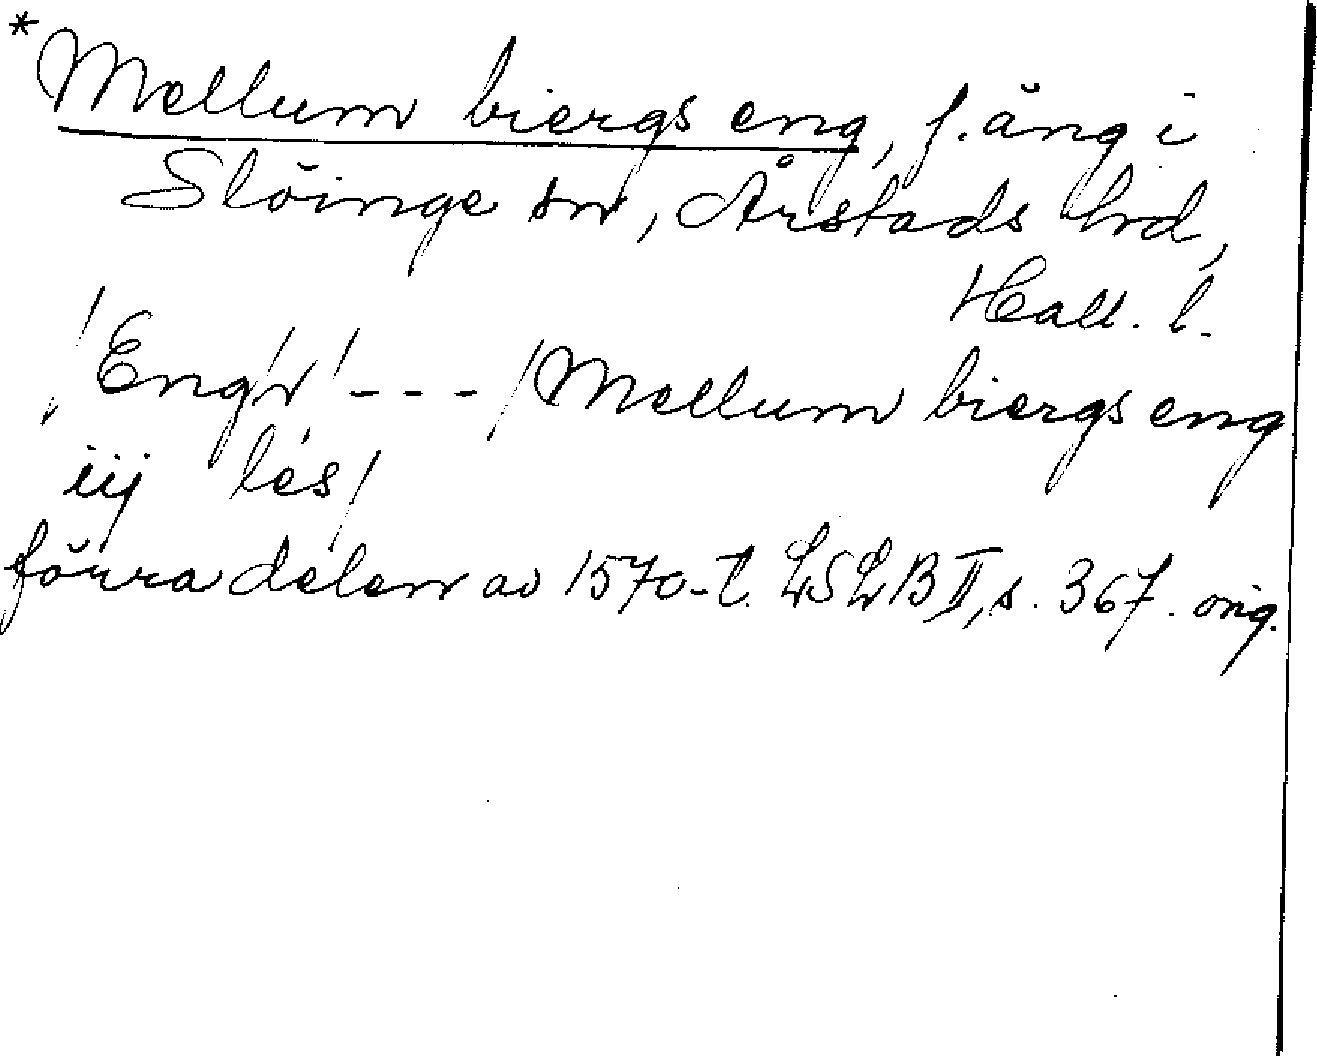 *Mellum biergs eng, f. äng i
Slöinge sn, Årstads hrd,
Hall. l.
/Eng/r/ - - - /Mellum biergs eng
iij les/
förra delen av 1570-t. LSLB II, s. 367. orig.